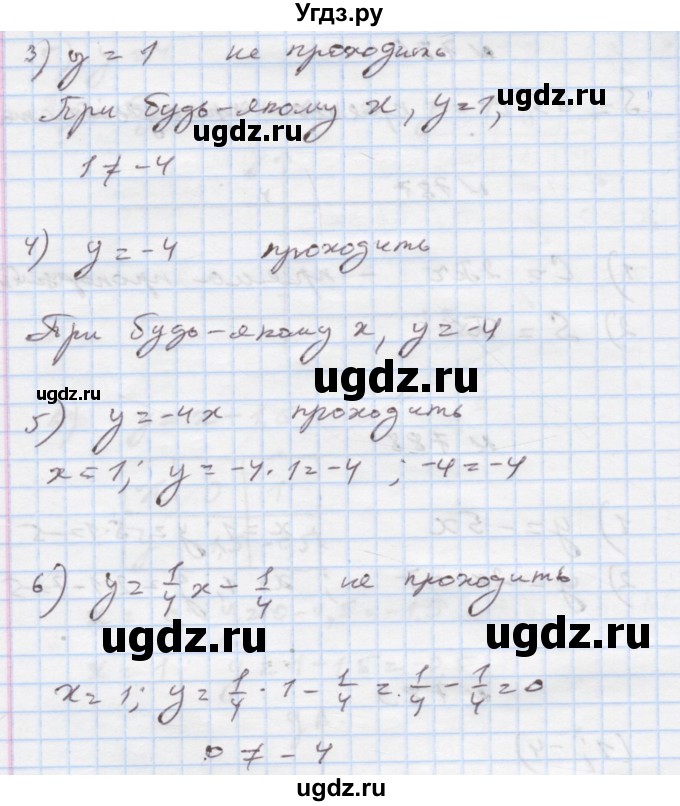 Угдз.ру
3) y = 1 не проходить
При будь-якому x, y=1,
ugdz.ru
ugdz.ru
1 ≠ -4
4) y = -4 проходить
При будь-якому x, y = -4
ugdz.ru
ugdz.ru
5) y = -4x проходить
x = 1; y = -4·1 = -4 ; -4 = -4
6) y = 1/4 x - 1/4 не проходить
ugdz.ru
ugdz.ru
x = 1; y = 1/4 · 1 - 1/4 = 1/4 - 1/4 = 0
0 ≠ -4
ugdz.ru